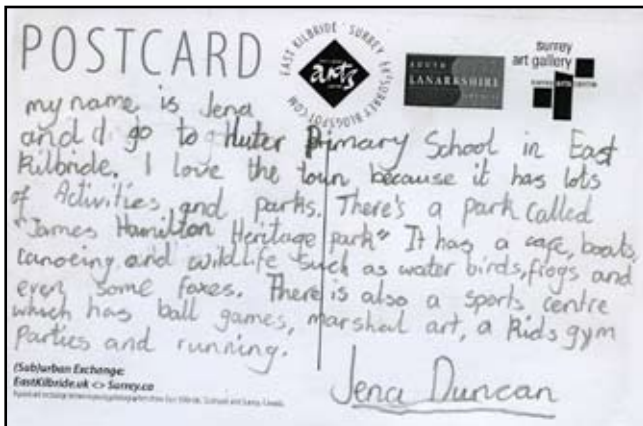 POSTCARD
EAST KILBRIDE SURREY EK2SURREY.BLOGSPOT.COM
arts
SOUTH
LANARKSHIRE
COUNCIL
surrey
art gallery
surrey arts centre
my name is Jena
and I go to Huter Primary School in East
Kilbride. I love the town because it has lots
of Activities and parks. There's a park called
"James Hamilton Heritage park" It has a cafe, boats,
canoeing and wildlife such as water birds, frogs and
even some foxes. There is also a sports centre
which has ball games, marshal art, a kids gym
Parties and running.
Jena Duncan
(Sub)urban Exchange:
EastKilbride.uk <> Surrey.ca